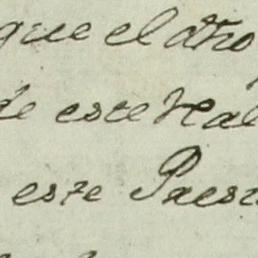 que el dho
de este Real
este Paes